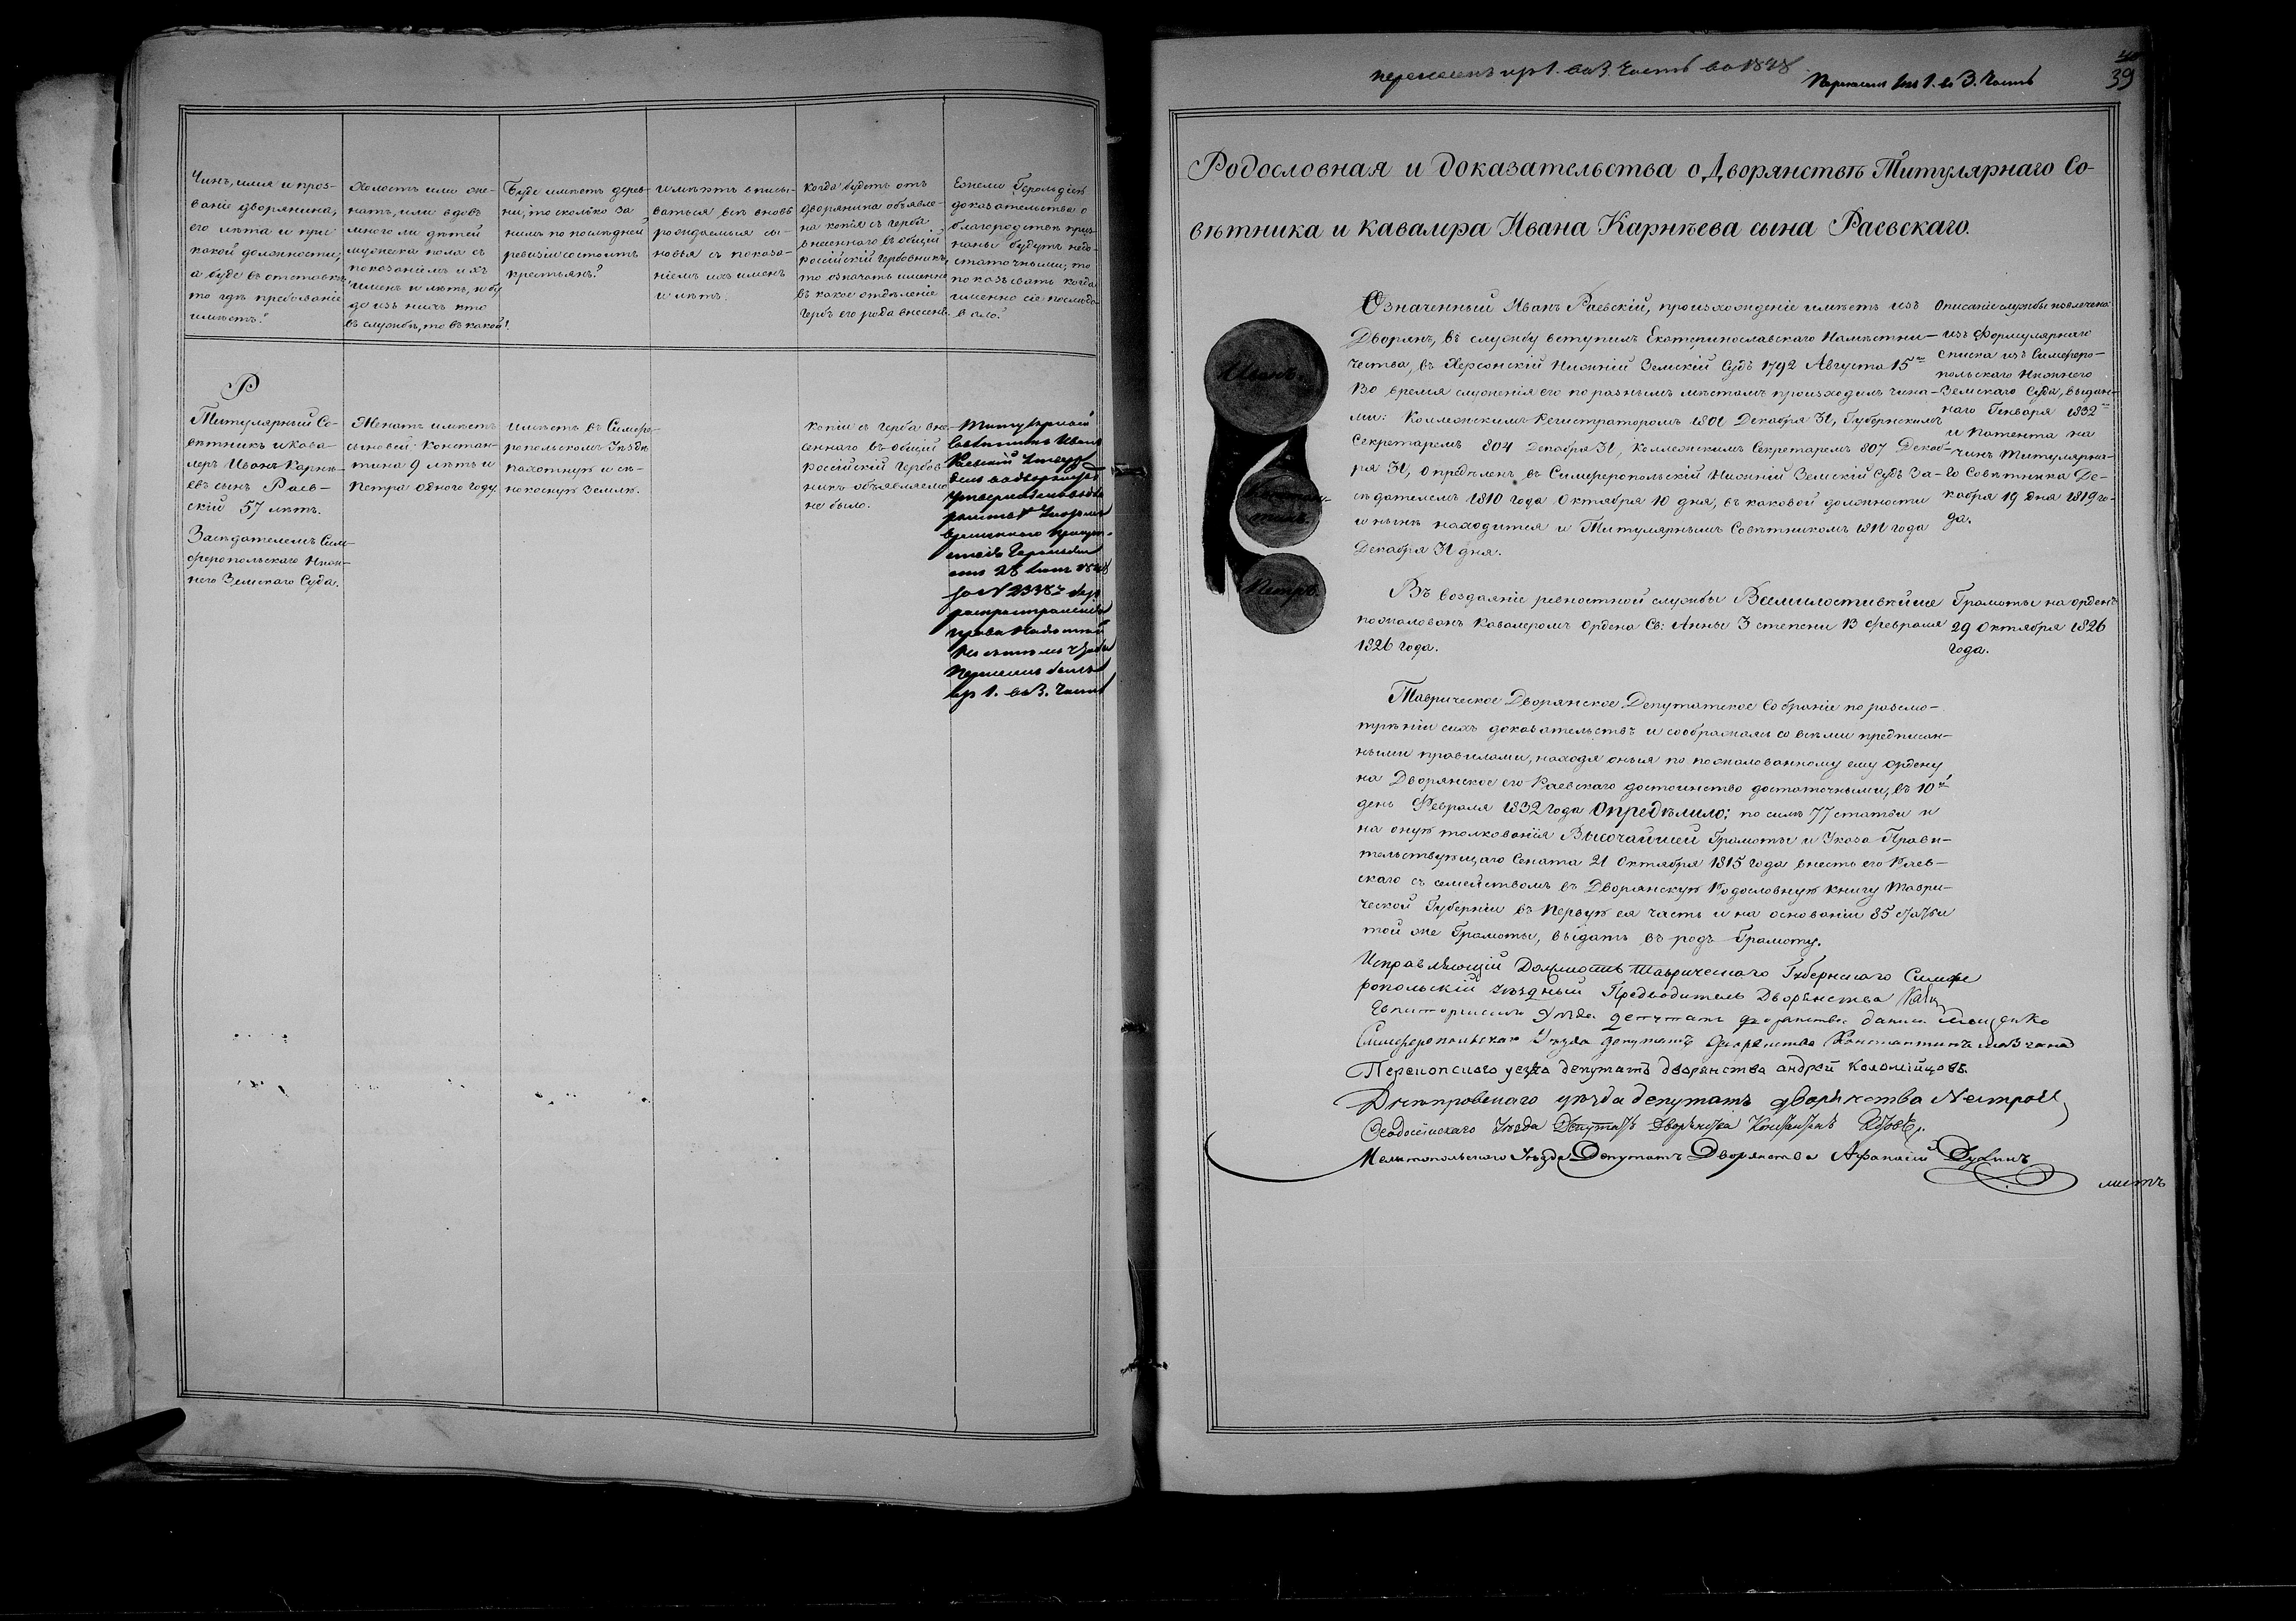 Чинъ, имя и проз-
ваніе дворянина,
его лѣта и при
какой должности;
а буде въ отставкѣ
то гдѣ пребываніе
имѣетъ?
Холостъ или же-
натъ, или вдовъ
много ли дѣтей
мужеска пола съ
показаніемъ ихъ
именъ и лѣтъ, и бу
де изъ нихъ кто
въ службѣ, то въ какой?
Буде имѣетъ дерев-
ни, то сколько за
нимъ по послѣдней
ревизіи состоитъ
крестьянъ?
Имѣютъ вписы-
ваться всѣ вновь
рождаемыя сы-
новья съ показа-
ніемъ ихъ именъ
и лѣтъ.
Когда будетъ отъ
дворянина объявле-
на копія съ герба
внесеннаго въ общій
россійскій гербовникъ,
то означать именно
въ какое отдѣленіе
гербъ его рода внесенъ.
Ежели Герольдіею
доказательства о
благородствѣ приз-
наны будутъ недо-
статочными, то
показывать когда
именно сіе послѣдо-
вало?
Р
Титулярный Со-
вѣтникъ и Кава-
леръ Иванъ Карнѣ-
евъ сынъ Раев-
скій 57 лѣтъ.
Засѣдателемъ Сим-
феропольскаго Ниж-
няго Земскаго Суда.
Женатъ имѣетъ
сыновей: Констан-
тина 9 лѣтъ и
Петра одного году.
Имѣетъ въ Симфе-
ропольскомъ Уѣздѣ
пахотную и сѣ-
нокосную землю.
Копіи съ герба вне-
сеннаго въ общій
россійскій гербов-
никъ объявляемо
не было.
Титулярный
Совѣтникъ Иванъ
Раевскій
Временнаго
Герольдіи
правъ
перенесенъ
изъ 1. въ 3. часть
перенесенъ изъ 1. въ 3. часть въ 1848
Перенесенъ изъ 1. въ 3. часть
39
Родословная и доказательства о Дворянствѣ Титулярнаго Со-
вѣтника и Кавалера Ивана Карнѣева сына Раевскаго.
Иванъ.
Констан-
тинъ.
Петръ.
Означенный Иванъ Раевскій, происхожденіе имѣетъ изъ
Дворянъ, въ службу вступилъ Екатеринославскаго Намѣстни-
чества, въ Херсонскій Нижній Земскій Судъ 1792 Августа 15го
Во время служенія его по разнымъ мѣстамъ происходилъ чина-
ми: Коллежскимъ Регистраторомъ 1801 Декабря 31, Губернскимъ
Секретаремъ 804 Декабря 31, Коллежскимъ Секретаремъ 807 Декаб-
ря 31, опредѣленъ въ Симферопольскій Нижній Земскій Судъ За-
сѣдателемъ 1810 года Октября 10 дня, въ каковой должности
и нынѣ находится и Титулярнымъ Совѣтникомъ 1811 года
Декабря 31 дня.
Описаніе службы извлечено
изъ Формулярнаго
списка изъ Симферо-
польскаго Нижнего
Земскаго Суда, выдан-
наго Генваря 1832
и Патента на
чинъ Титулярна-
го Совѣтника Де-
кабря 19 дня 1819 го-
да.
Въ воздаяніе ревностной службы Всемилостивѣйше
пожалованъ Кавалеромъ ордена Св: Анны 3 степени 13 Февраля
1826 года.
Грамоты на орденъ
29 Октября 1826
года.
Таврическое Дворянское Депутатское Собраніе по разсмо-
трѣніи сихъ доказательствъ и соображаясь со всѣми предписан-
ными правилами, находя оныя по пожалованному ему ордену
на Дворянское его Раевскаго достоинство достаточными, въ 10й
день Февраля 1832 года Опредѣлило: по силѣ 77 статьи и
на оную толкованія Высочайшей Грамоты и Указа Прави-
тельствующаго Сената 21 Октября 1815 года внесть его Раев-
скаго съ семействомъ въ Дворянскую Родословную книгу Таври-
ческой Губерніи въ первую ея часть и на основаніи 85 статьи
той же Грамоты, выдать въ родъ Грамоту.
Исправляющій Должность Таврическаго Губернскаго Симфе
ропольскій Уѣздный Предводитель Дворянства
Евпаторійскаго Уѣзда депутатъ дворянства
Симферопольскаго Уѣзда депутатъ дворянства Константинъ
Перекопскаго уезда депутатъ дворянства андрей коломійцовъ.
Днѣпровскаго уѣзда депутатъ дворянства
Ѳеодосійскаго Уѣзда Депутатъ Дворянства
Мелитопольскаго Уѣзда Депутатъ Дворянства Афанасій
листъ